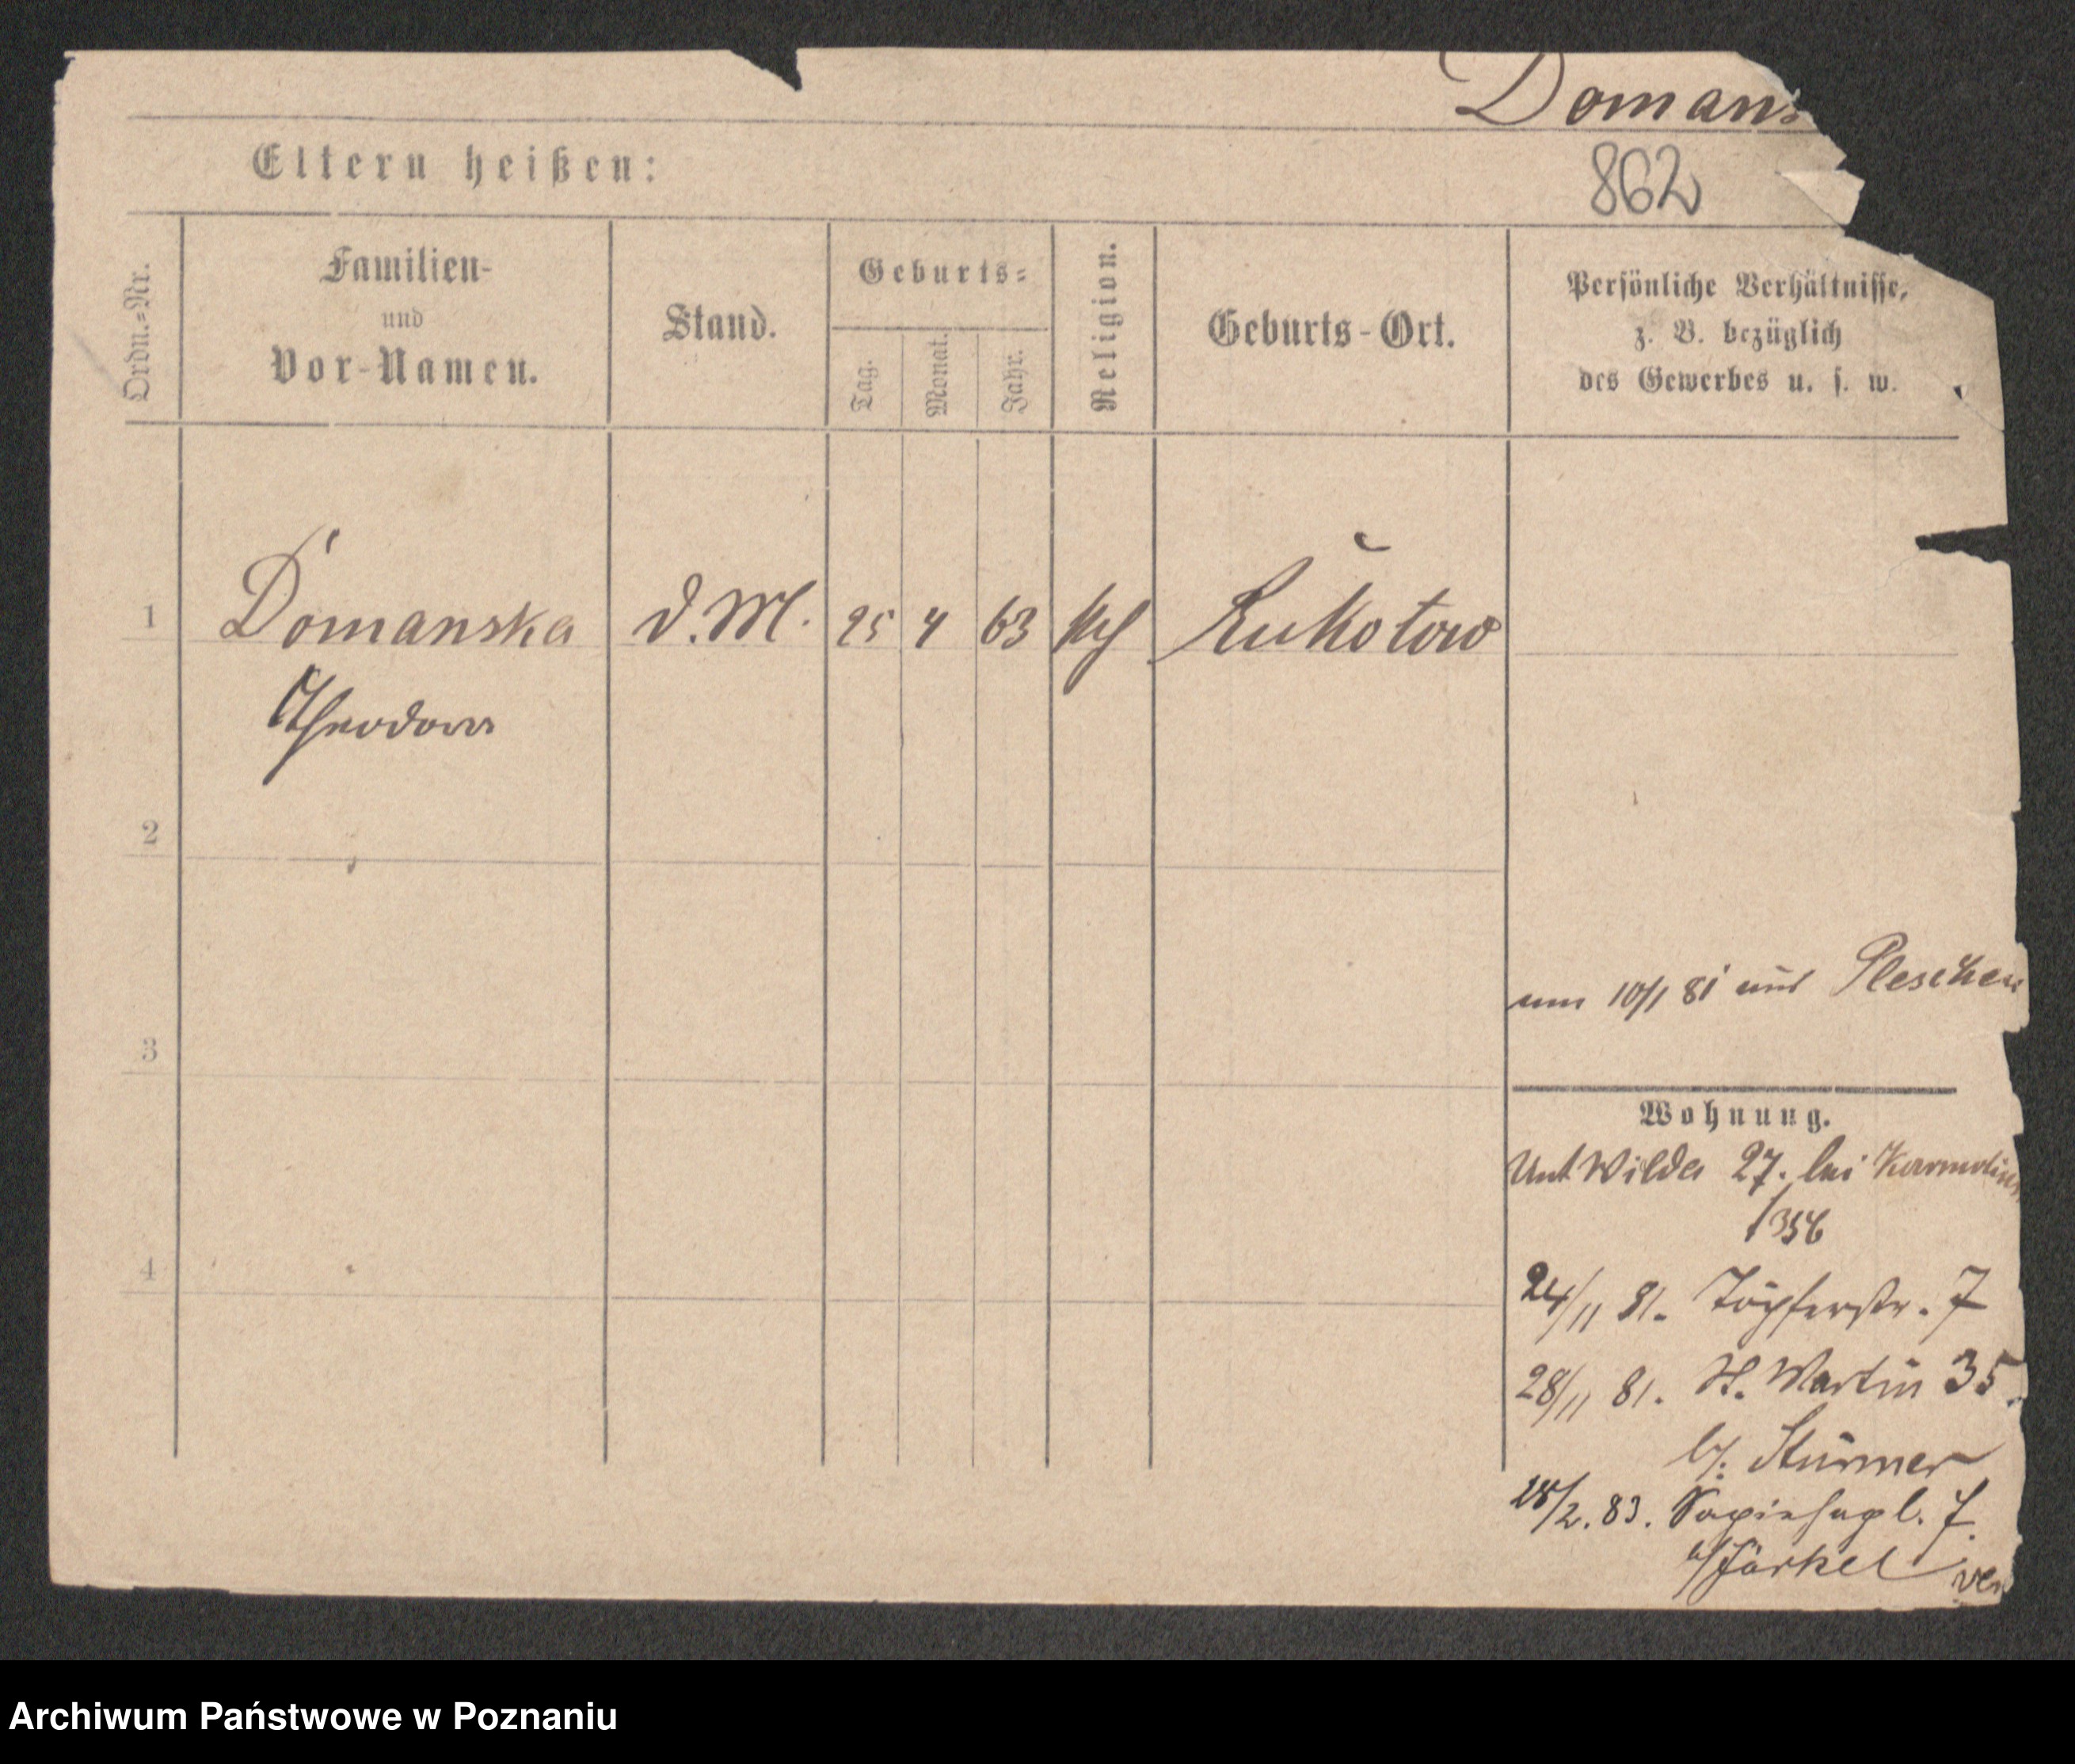 Domans
862
Eltern heißen:
Ordn.-Nr.
Familien-
und
Vor-Namen.
Stand.
Geburts-
Tag.
Monat.
Jahr.
Religion.
Geburts-Ort.
Persönliche Verhältnisse,
z. B. bezüglich
des Gewerbes u. s. w.
1 Domanska D.M. 25 4 63 kth Kukotow
Theodora
2
3
um 10/1 81 aus Pleschen
Wohnung.
Unt Wilda 27. bei
/356
4
24/11 81. Töpferstr. 7
28/11 81. St. Martin 35.
b/. Stürmer
18/2. 83. Sapiehapl. 7.
b/
Archiwum Państwowe w Poznaniu